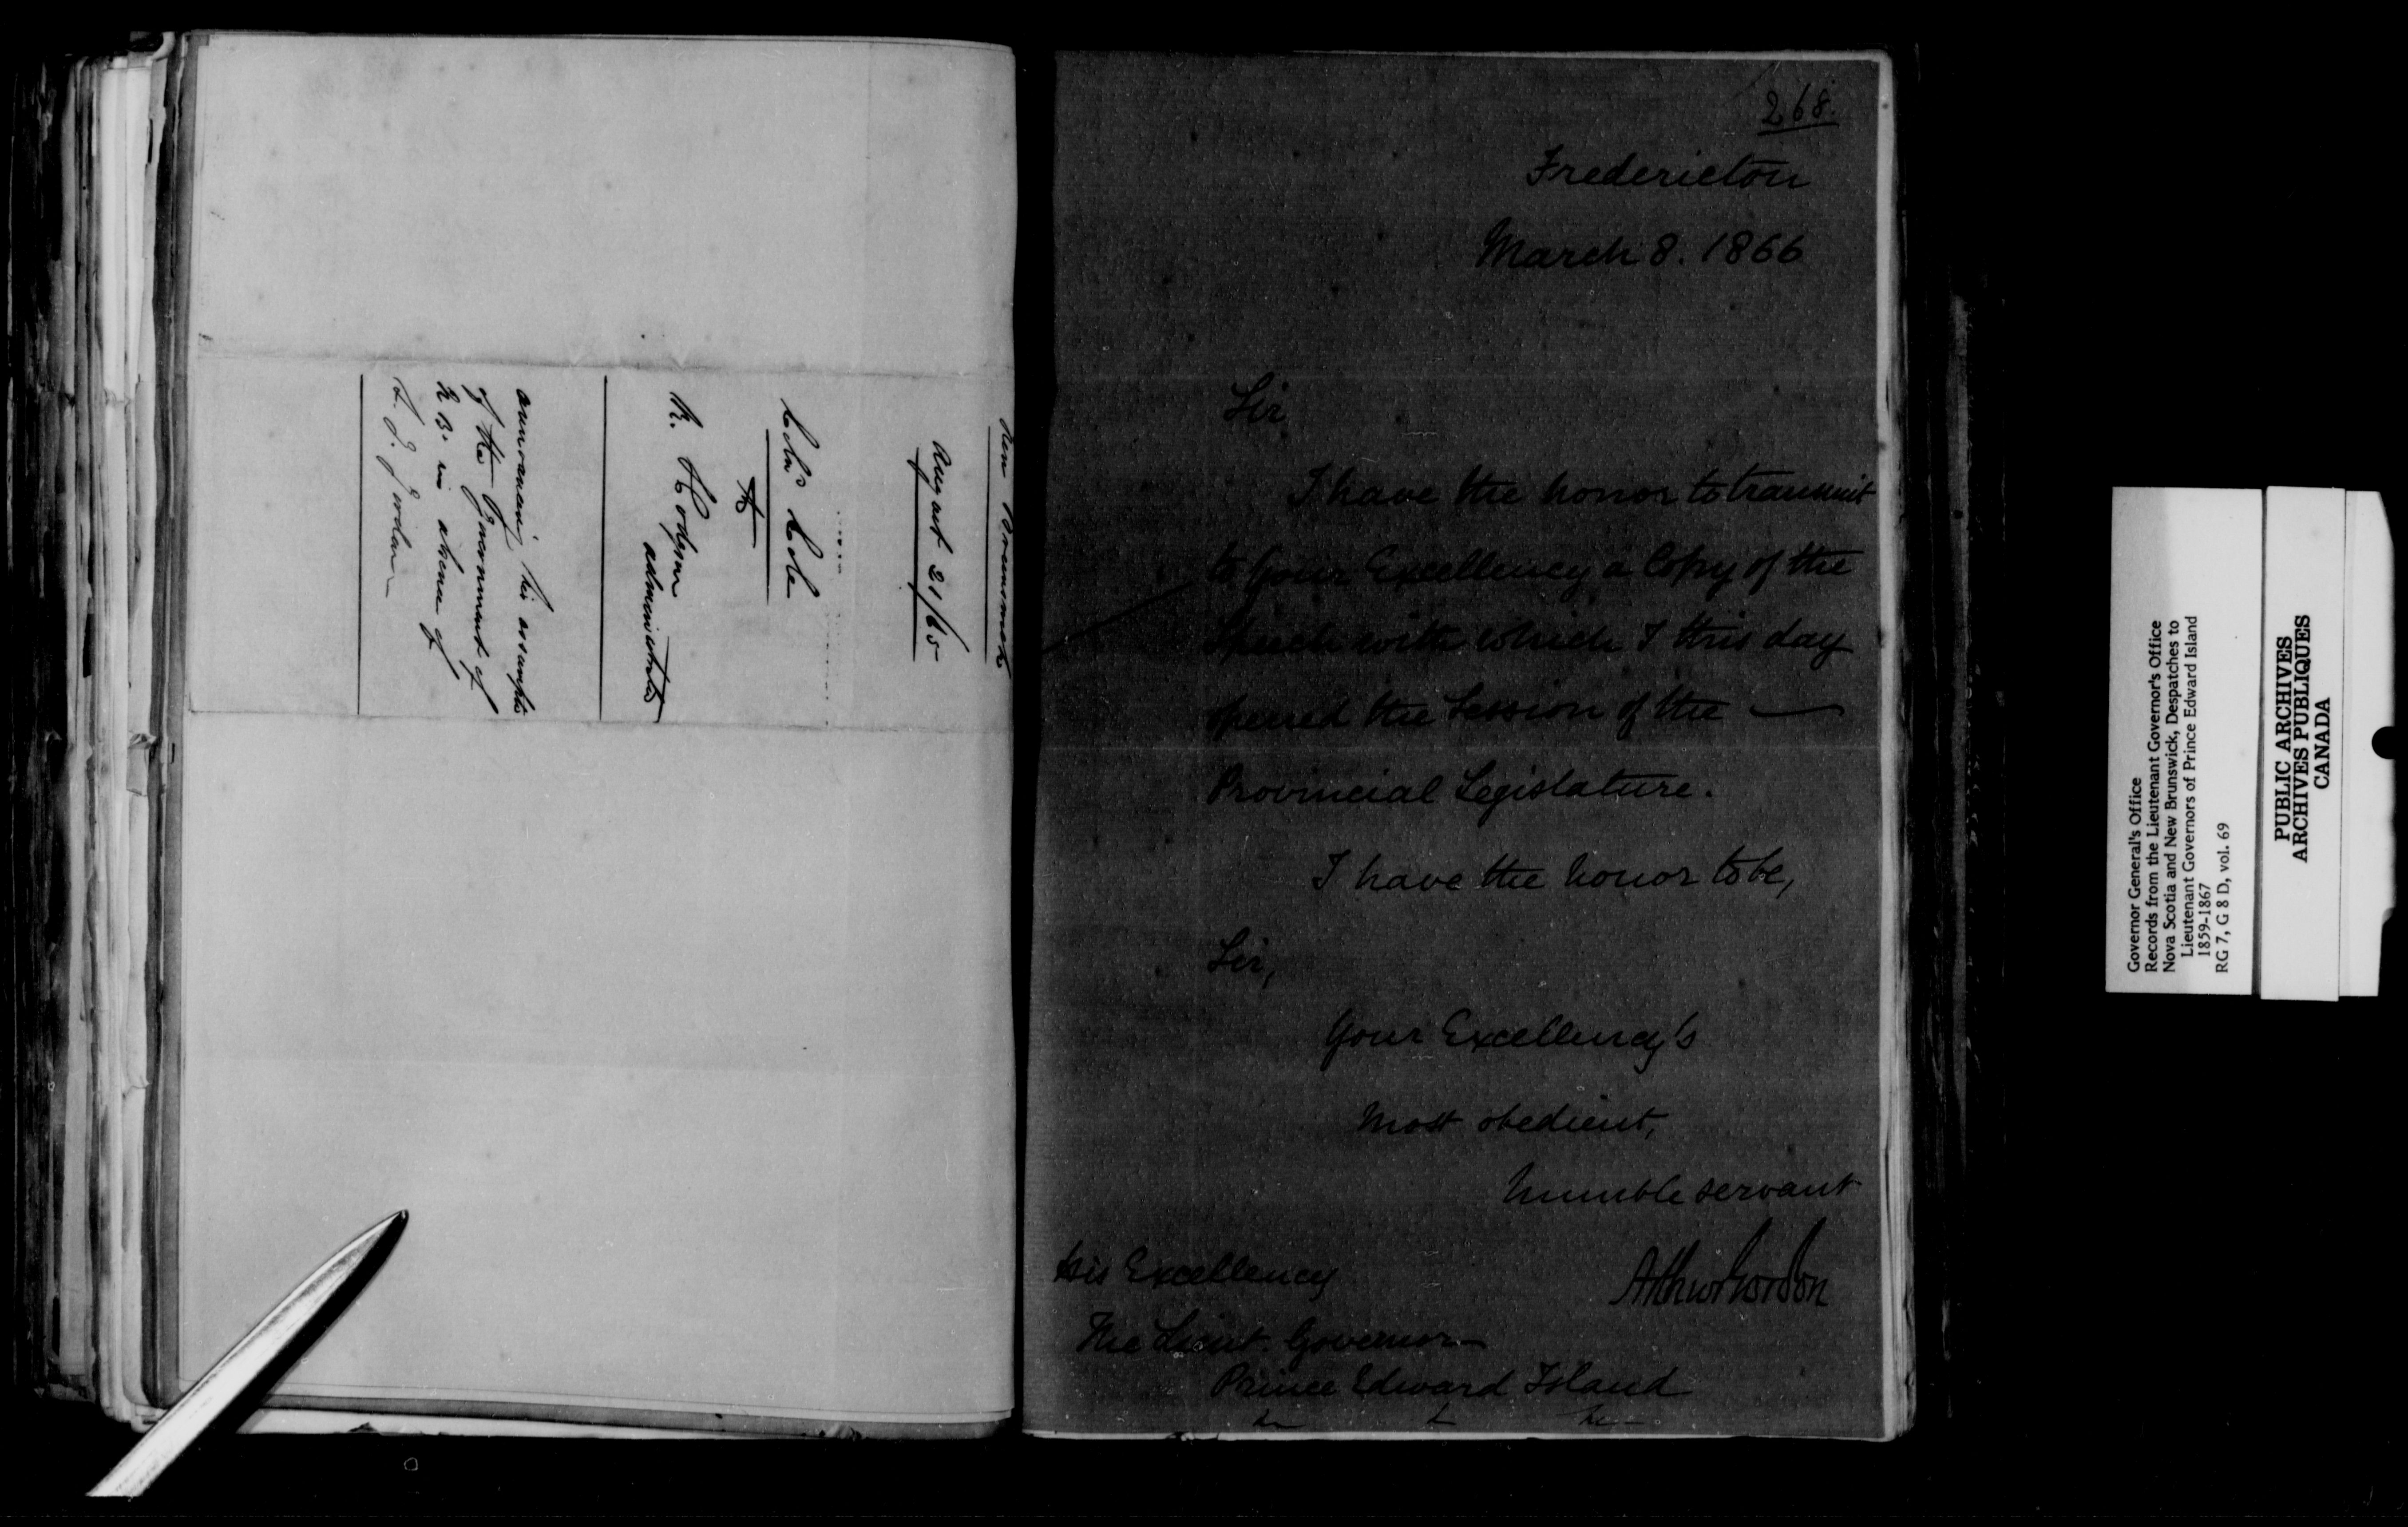 New Brunswick
August 21/65
Col. Cole
to
R. Hodgson
administrator
announcing his assumption
of the Government of
N. B. in absence of
Gordon
268.
Fredericton
March 8. 1866
Sir
I have the honor to transmit
to Your Excellency a Copy of the
Speech with which I this day
opened the Session of the
Provincial Legislature.
I have the honor to be,
Sir,
Your Excellency's
Most obedient,
humble servant
Arthur Gordon
His Excellency
The Lieut. Governor
Prince Edward Island
Governor General's Office
Records from the Lieutenant Governor's Office
Nova Scotia and New Brunswick, Despatches to
Lieutenant Governors of Prince Edward Island
1859-1867
RG 7, G 8 D, vol. 69
PUBLIC ARCHIVES
ARCHIVES PUBLIQUES
CANADA